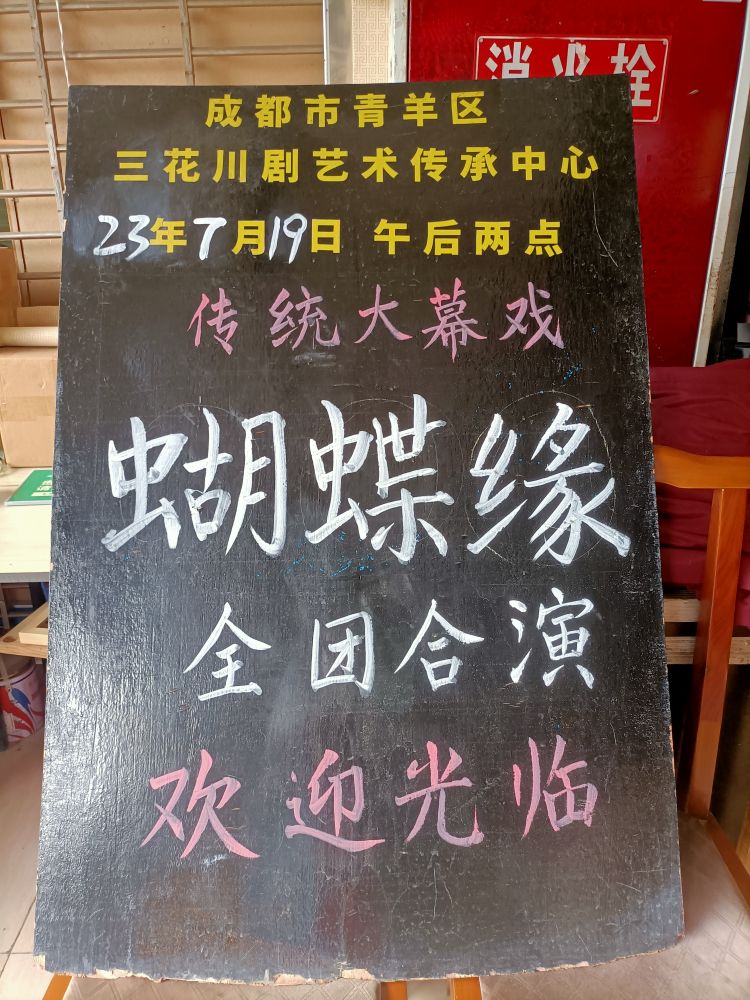 消火栓
成都市青羊区
三花川剧艺术传承中心
23年7月19日 午后两点
传统大幕戏
蝴蝶缘
全团合演
欢迎光临